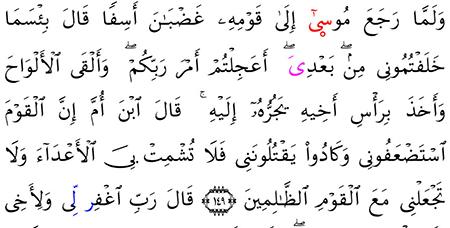 وَلَمَّا رَجَعَ مُوسِىٰٓ إِلَىٰ قَوْمِهِۦ غَضْبَٰنَ أَسِفًا قَالَ بِئْسَمَا
خَلَفْتُمُونِى مِنۢ بَعْدِىَ ۖ أَعَجِلْتُمْ أَمْرَ رَبِّكُمْ ۖ وَأَلْقَى ٱلْأَلْوَاحَ
وَأَخَذَ بِرَأْسِ أَخِيهِ يَجُرُّهُۥٓ إِلَيْهِ ۚ قَالَ ٱبْنَ أُمَّ إِنَّ ٱلْقَوْمَ
ٱسْتَضْعَفُونِى وَكَادُوا۟ يَقْتُلُونَنِى فَلَا تُشْمِتْ بِىَ ٱلْأَعْدَآءَ وَلَا
تَجْعَلْنِى مَعَ ٱلْقَوْمِ ٱلظَّٰلِمِينَ ﴿١٤٩﴾ قَالَ رَبِّ ٱغْفِر لِّى وَلِأَخِى